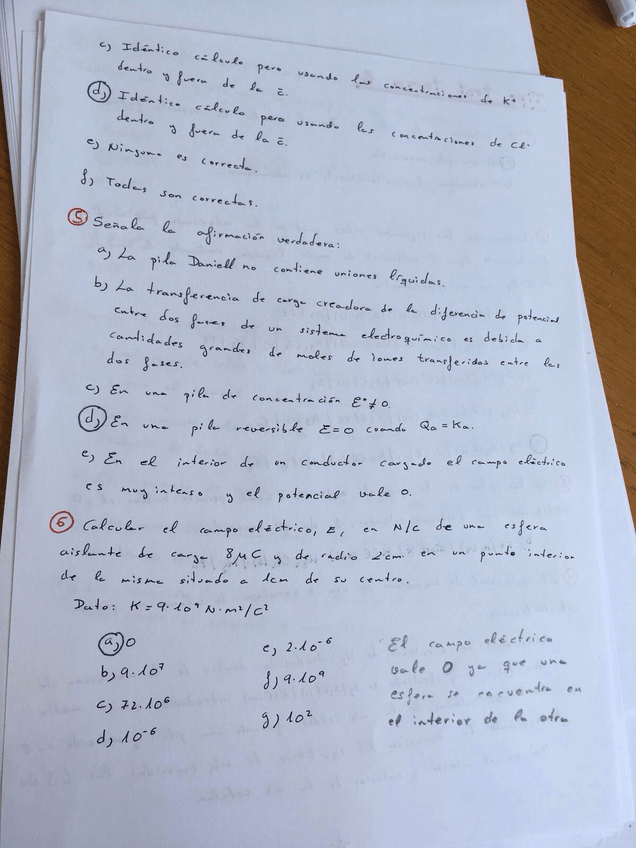 c) Idéntico cálculo pero usando las concentraciones de K+
dentro y fuera de la c̄.
d) Idéntico cálculo pero usando las concentraciones de Cl-
dentro y fuera de la c̄.
e) Ninguna es correcta.
f) Todas son correctas.
5 Señala la afirmación verdadera:
a) La pila Daniell no contiene uniones líquidas.
b) La transferencia de carga creadora de la diferencia de potencial
entre dos fases de un sistema electroquímico es debida a
cantidades grandes de moles de iones transferidos entre las
dos fases.
c) En una pila de concentración Eº≠0.
d) En una pila reversible E=0 cuando Qa=Ka.
e) En el interior de un conductor cargado el campo eléctrico
es muy intenso y el potencial vale 0.
6 Calcular el campo eléctrico, E, en N/C de una esfera
aislante de carga 8μC y de radio 2cm en un punto interior
de la misma situado a 1cm de su centro.
Dato: K=9·10⁹ N·m²/C²
a) 0
b) 9·10⁷
c) 72·10⁶
d) 10⁻⁶
e) 2·10⁻⁶
f) 9·10⁹
g) 10²
El campo eléctrico
vale 0 ya que una
esfera se encuentra en
el interior de la otra